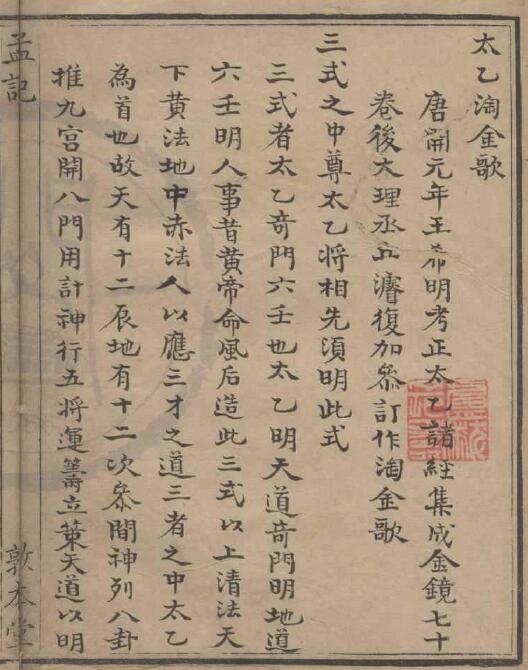 太乙淘金歌
唐開元年王希明考正太乙諸經集成金鏡七十
卷後大理丞丘濬復加叅訂作淘金歌
三式之中尊太乙將相先須明此式
三式者太乙奇門六壬也太乙明天道奇門明地道
六壬明人事昔黄帝命風后造此三式以上清法天
下黄法地中赤法人以應三才之道三者之中太乙
為首也故天有十二辰地有十二次叅間神列八卦
推九宫開八門用計神行五將運籌立策天道以明
孟記
敦本堂